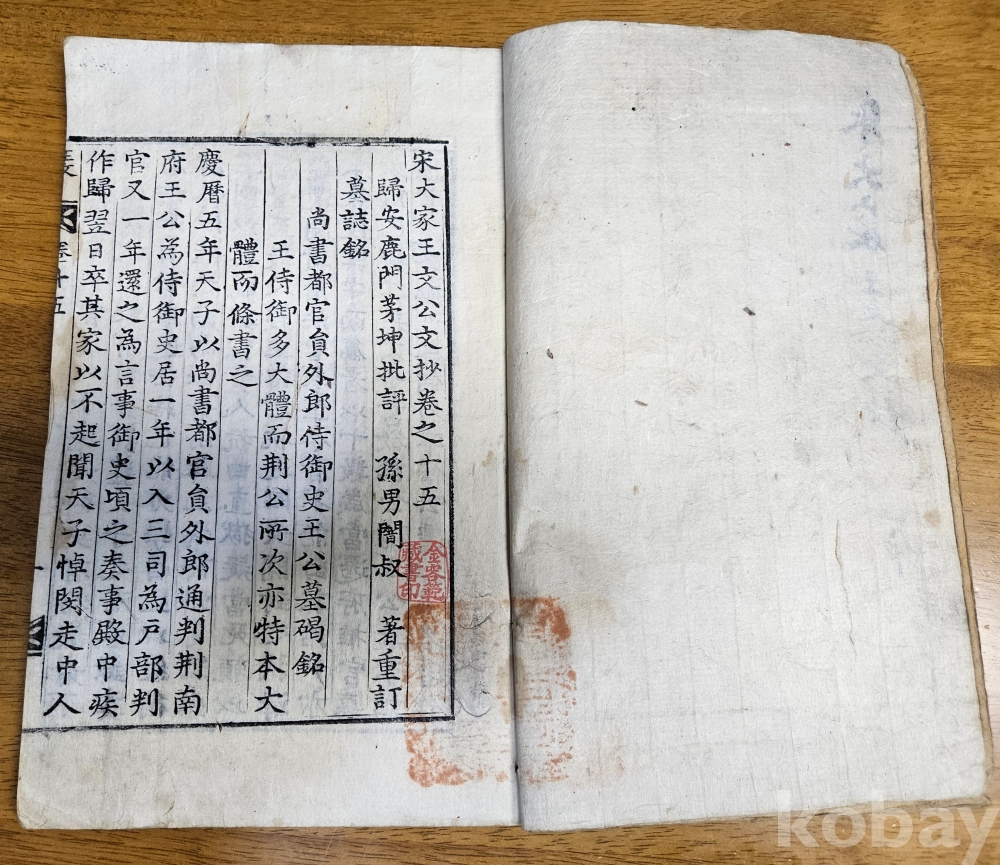 宋大家王文公文抄卷之十五
歸安鹿門茅坤批評 孫男闇叔 著重訂
墓誌銘
尚書都官員外郎侍御史王公墓碣銘
王侍御多大體而荆公所次亦特本大
體而條書之
慶曆五年天子以尚書都官員外郎通判荆南
府王公為侍御史居一年以入三司為户部判
官又一年還之為言事御史頃之奏事殿中疾
作歸翌日卒其家以不起聞天子悼閔走中人
卷十五
藏書印
kobay